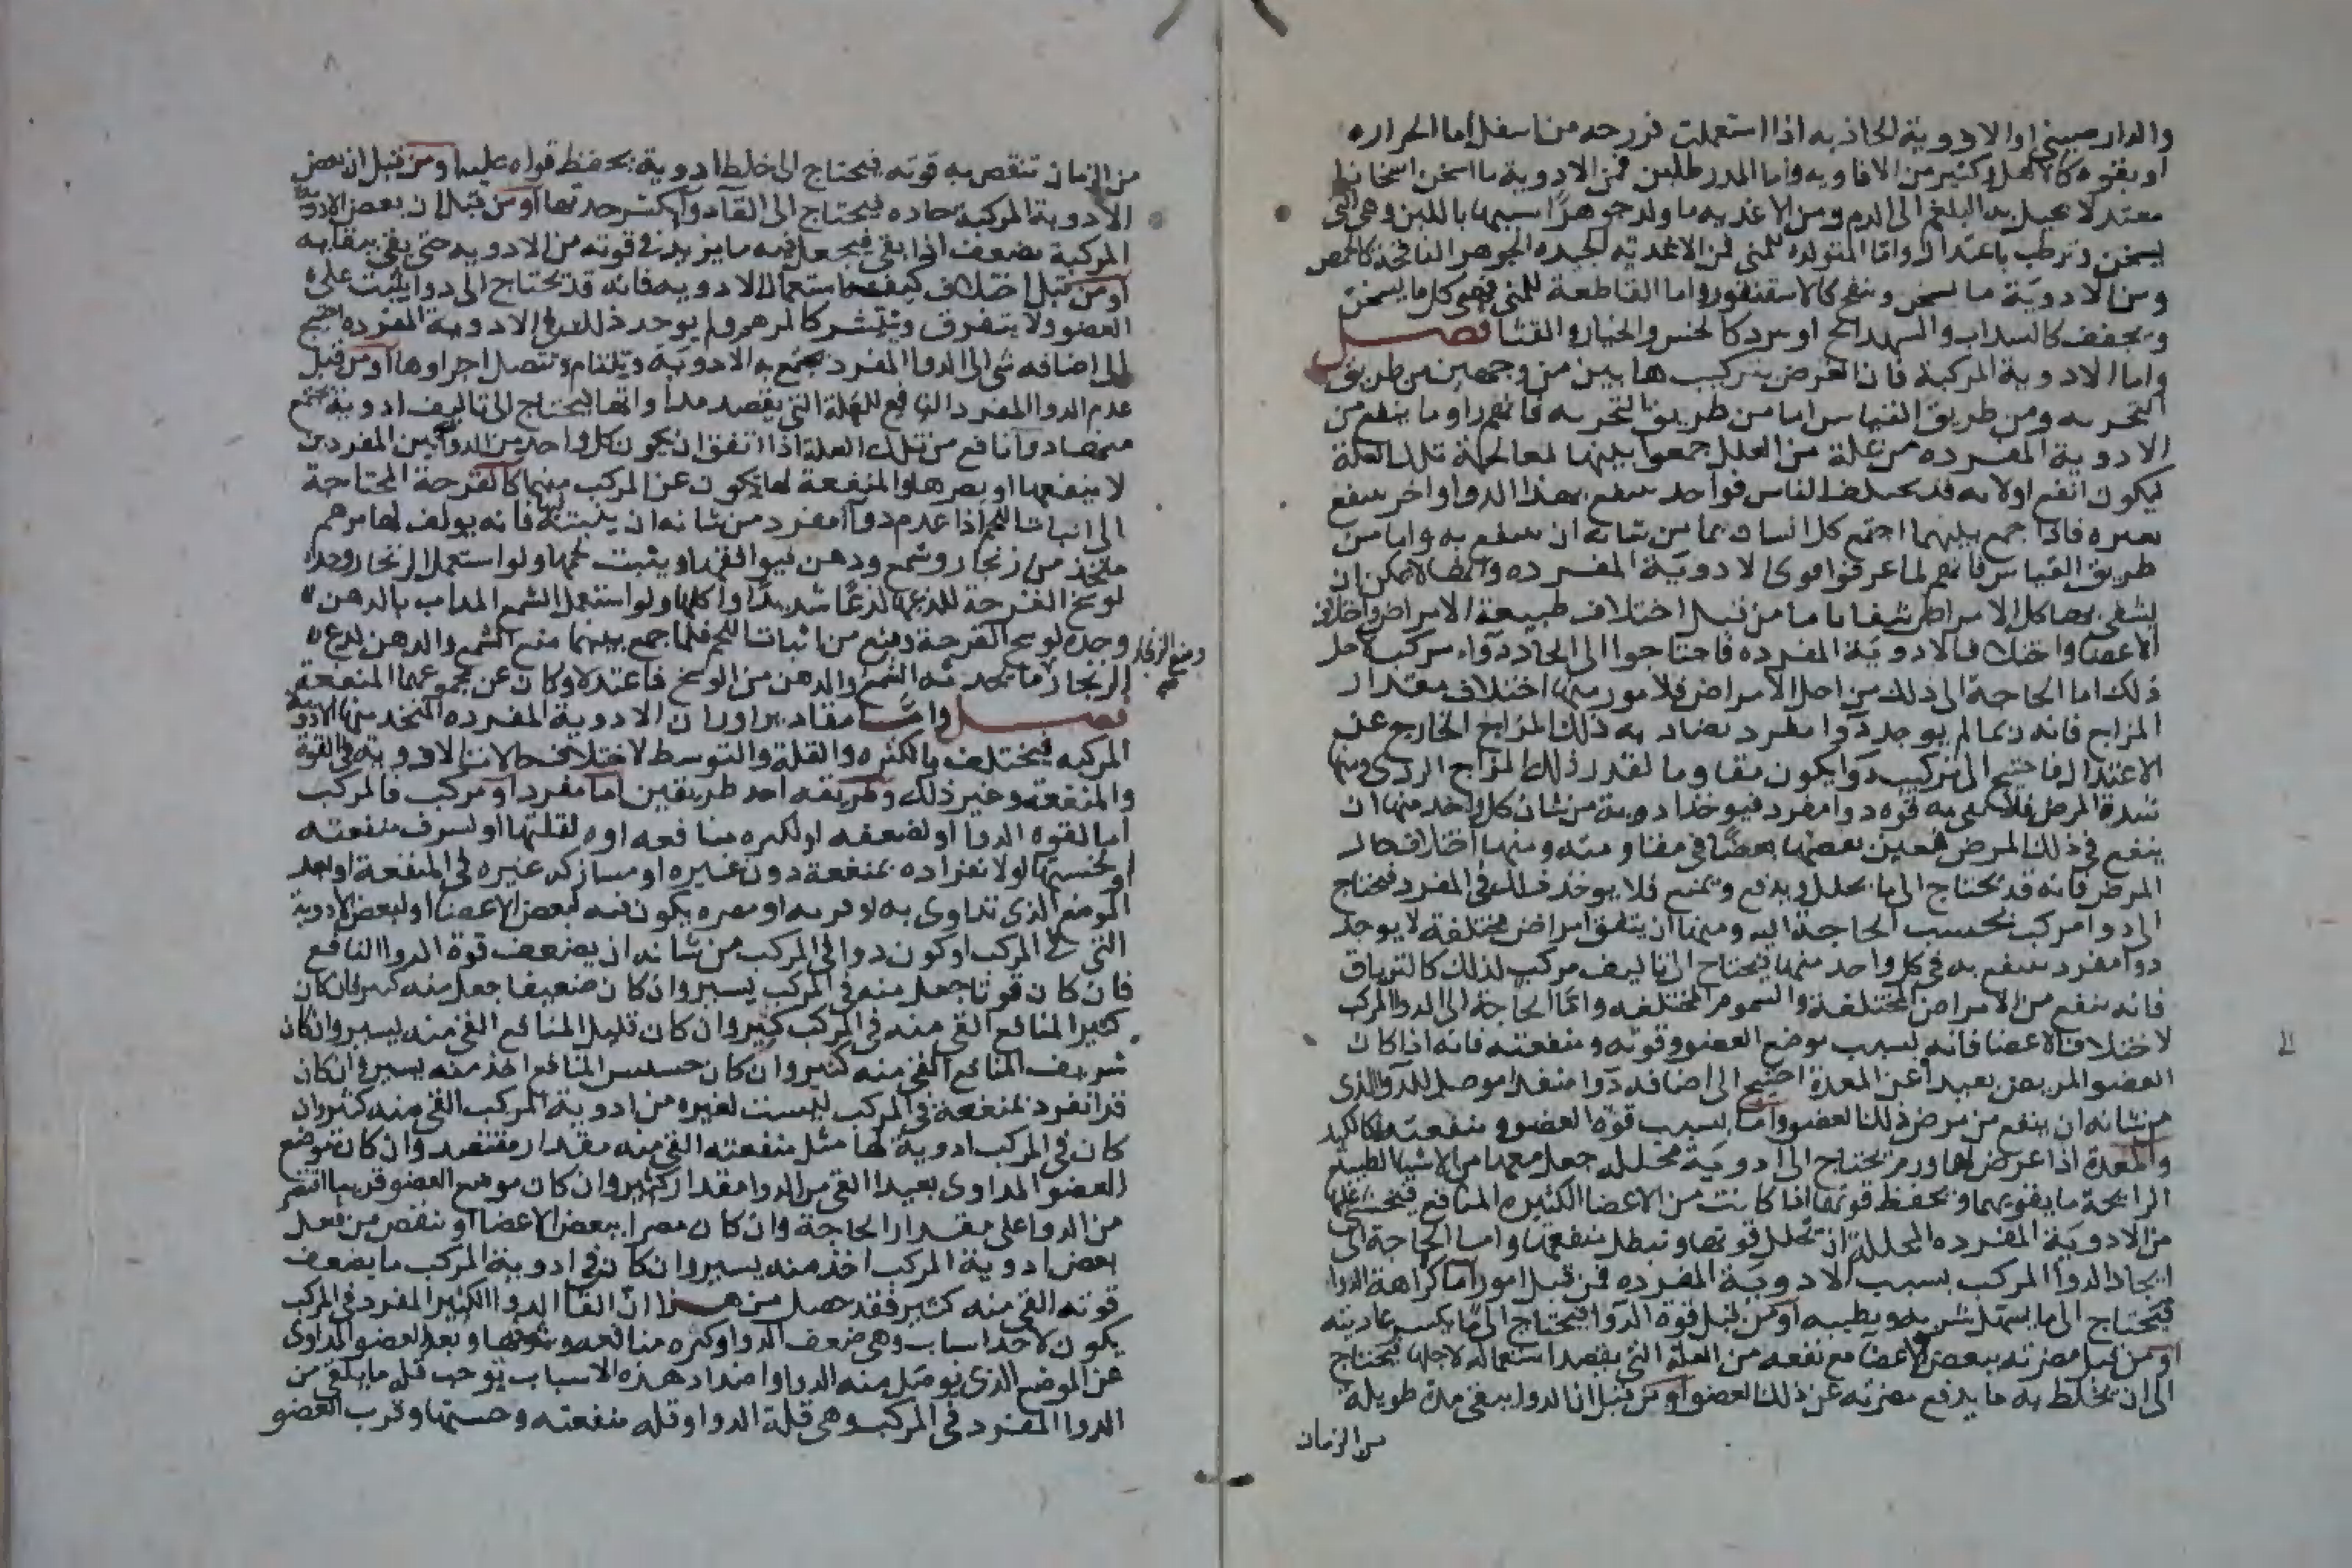 والدارصيني او الادوية الحاذبه اذا استعملت فزرجه من اسفل اما الحراره
او بقوه كالعسل وكثير من الافاويه واما المدر للبن فمن الادوية ما اسخن اسخانا
معتدلا يحيل به البلغم الى الدم ومن الاغذيه ما ولد جوهرا شبيها باللبن وهي التي
يسخن وترطب باعتدال واما المتولده للمني فمن الاغذيه الجيده الجوهر النافخه كالحمص
ومن الادوية ما يسخن وينفخ كالاسقنقور واما القاطعة للمني فهي كل ما يسخن
ويجفف كالسداب والشهدانج او يبرد كالخس والخيار والقثا فصل
واما الادوية المركبة فان الغرض بتركيبها يبين من وجهين من طريق
التجربه ومن طريق القياس اما من طريق التجربه فانهم راو ما ينفع من
الادوية المفرده من علة من العلل جمعوا بينها لمعالجة تلك العلة
ليكون انفع اولانه قد يختلف الناس فواحد ينتفع بهذا الدوا واخر ينتفع
بغيره فاذا جمع بينهما اجتمع كل انسان بما من شانه ان ينتفع به واما من
طريق القياس فانهم لما عرفوا قوى الادوية المفرده وانها لا يمكن ان
يشفى بها كل الامراض شفا تاما من قبل اختلاف طبيعة الامراض واختلاف
الاعضا واختلاف الادوية المفرده فاحتاجوا الى اتحاد دواء مركب من اجل
ذلك اما الحاجة الى ذلك من اجل الامراض فلامور منها اختلاف مقدار
المزاج فانه ربما لم يوجد دوا مفرد يضاد به ذلك المزاج الخارج عن
الاعتدال فاحتيج الى تركيب دوا يكون مقاوما لقدر ذلك المزاج الردى ومنها
شدة المرض فلا يفى به قوه دوا مفرد فيوخذ ادوية من شان كل واحد منها ان
ينفع في ذلك المرض فيعين بعضها بعضا في مقاومته ومنها اختلاف حال
المرض فانه قد يحتاج الى ما يحلل ويدفع ويمنع فلا يوجد ذلك في المفرد فيحتاج
الى دوا مركب بحسب الحاجة اليه ومنها ان يتفق امراض مختلفة لا يوجد
دوا مفرد ينتفع به في كل واحد منها فيحتاج الى تاليف مركب لذلك كالترياق
فانه ينفع من الامراض المختلفة والسموم المختلفه واما الحاجة الى الدوا المركب
لاختلاف الاعضا فانه بسبب موضع العضو وقوته ومنفعته فانه اذا كان
العضو المريض بعيدا عن المعدة احتيج الى اضافة دوا منفذا موصل للدوا الذي
من شانه ان ينفع من مرض ذلك العضو واما بسبب قوة العضو ومنفعته فكالكبد
والمعدة اذا عرض لها ورم يحتاج الى ادوية محلله جعل معها من الاشيا الطيبة
الرايحة ما يقويهما ويحفظ قوتها اذا كانت من الاعضا الكثيره المنافع فيخشى عليها
من الادوية المفرده المحللة ان تحلل قوتها وتبطل منفعتها واما الحاجة الى
ايجاد الدوا المركب بسبب الادوية المفرده فمن قبل امور اما كراهة الدوا
فيحتاج الى ما يسهل شربه ويطيبه او من قبل قوة الدوا فيحتاج الى ما يكسر عاديته
او من قبل مضرته ببعض الاعضا مع نفعه من العلة التي يقصد استعماله لاجلها فيحتاج
الى ان يخلط به ما يدفع مضرته عن ذلك العضو او من قبل ان الدوا يبقى مدة طويلة
من الزمان
من الزمان تنقص به قوته فيحتاج الى خلط ادوية يحفظ قواه عليه او من قبل ان بعض
الادوية المركبة حاده فيحتاج الى القا دوا يكسر حدتها او من قبل ان بعض الادوية
المركبة يضعف اذا بقي فيجعل فيه ما يزيد في قوته من الادويه حتى يقى ببقايه
او من قبل اختلاف كيفية استعمال الادويه فانه قد يحتاج الى دوا يثبت على
العضو ولا يتفرق وينتشر كالمرهم ولم يوجد ذلك في الادوية المفرده احتيج
الى اضافه شي الى الدوا المفرد يجتمع به الادوية ويلتئام وتتصل اجزاوها او من قبل
عدم الدوا المفرد النافع للعلة التي يقصد مداواتها فيحتاج الى تاليف ادوية يجتمع
منها دوا نافع من تلك العلة اذا اتفق ان يكون كل واحد من الدوآين المفردين
لا ينفعها او يضرها والمنفعة لها يكون عن المركب منهما كالقرحة المحتاجة
الى انبات اللحم اذا عدم دوا مفرد من شانه ان ينبته لها فانه يولف لها مرهم
متخذ من زنجار وشمع ودهن فيوافقها وينبت لحمها ولو استعمل الزنجار وحده
لوسخ القرحة للذعها لذعا شديدا واكلها ولو استعمل الشمع المداب بالدهن
وحده لوسخ القرحة ومنع من انبات اللحم فلما جمع بينهما منع الشمع والدهن لدع
ومنع الزنجار
الزنجار ما يحدثه الشمع والدهن من الوسخ فاعتدلا وكان عن مجموعهما المنفعة
فصل واما مقادير اوزان الادوية المفرده المتخذ منها الادوية
المركبه فيختلف بالكثره والقلة والتوسط لاختلاف حالات الادوية في القوة
والمنفعة وغير ذلك وطريقه احد طريقين اما مفرد او مركب فالمركب
اما لقوه الدوا او لضعفه او لكثره منافعه او لقلتها او لشرف منفعته
او لخستها او لانفراده بمنفعة دون غيره او مشاركه غيره في المنفعة او لبعد
الموضع الذي تداوى به او قربه او مضره يكون فيه لبعض الاعضا او لبعض الادوية
التي في المركب او كون دوا في المركب من شانه ان يضعف قوة الدوا النافع
فان كان قويا جعل منه في المركب يسير وان كان ضعيفا جعل منه كثير فان كان
كثير المنافع القى منه في المركب كثير وان كان قليل المنافع القى منه يسير وان كان
شريف المنافع القى منه كثير وان كان خسيس المنافع اخذ منه يسير وان كان
قد انفرد بمنفعة في المركب ليست لغيره من ادوية المركب القى منه كثير وان
كان في المركب ادوية لها مثل منفعته القى منه مقدار مقتصد وان كان موضع
العضو المداوى بعيدا القى من الدوا مقدار كثير وان كان موضع العضو قريبا اقتصر
من الدوا على مقدار الحاجة وان كان مضرا ببعض الاعضا او ينقص من فعل
بعض ادوية المركب اخذ منه يسير وان كان في ادوية المركب ما يضعف
قوته القى منه كثير فقد حصل من هذا ان القا الدوا الكثير المفرد في المركب
يكون لاحد اسباب وهي ضعف الدوا وكثره منافعه وشرفها وبعد العضو المداوى
عن الموضع الذي يوصل منه الدوا واضداد هذه الاسباب توجب قله ما يلقى من
الدوا المفرد في المركب وهي قلة الدوا وقله منفعته وخستها وقرب العضو